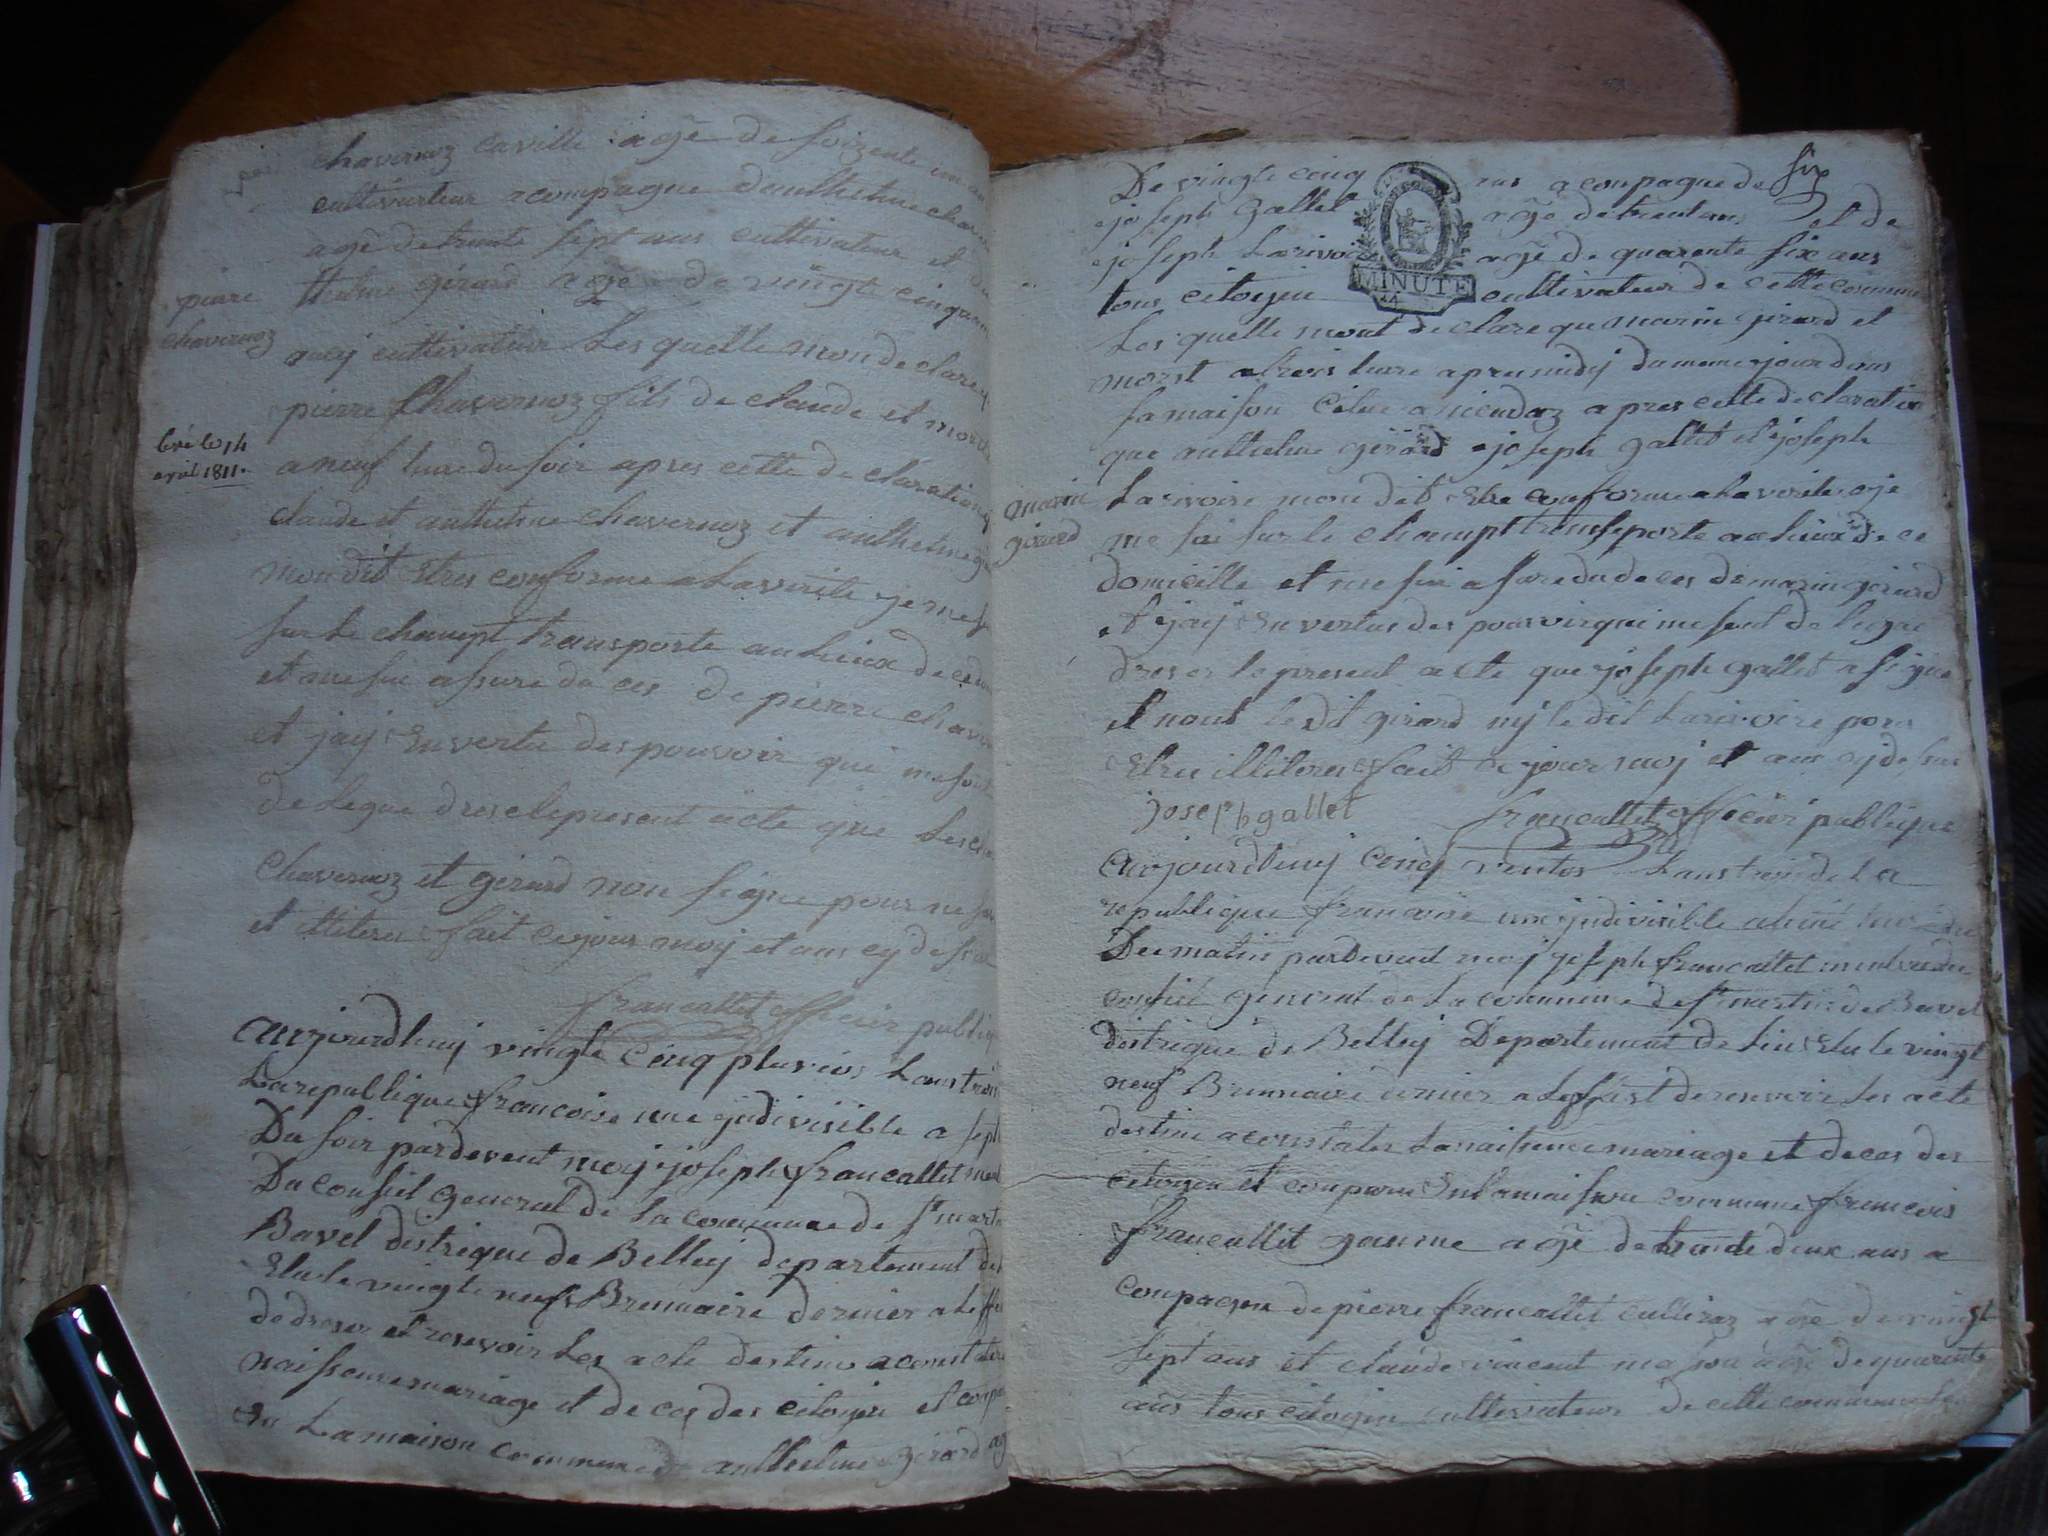 chavernoz caville agé de soizente
cultivateur acompagne danthelme
agé de trente sept ans cultivateur et
pierre
chavernoz
thelme girard agé de vingt cinq
cultivateur Les quelle mon declare
pierre Chavernoz fils de claude et mort
levé le 14
avril 1811.
a neuf heure du soir apres cette declaration
claude et anthelme chavernoz et anthelme
mon dit Etres conforme a La verite je me
sur le champt transporte au Lieux de
et me sui assure du ces de pierre
et jay En vertu des pouvoir qui me sont
delegue drese le present acte que Les
chavernoz et girard non signe pour ne
et illiteré fait ce jour moy et ans cy desu
francallet officier public
Aurjourdhuy vingte Cinq pluvios Lans trois
La republique francoise une jndivisible a sept
Du soir pardevent moy joseph francallet
Du conseil general de La commune de St martin
Bavel distrique de Belley departement de
Elu le vingte neuf Brumaire dernier a Leffe
de dreser et resevoir Les acte destine a constater
naissence mariage et deces des citoyen et
En La maison commune anthelme girard
six
De vingte cinq ans acompagne de
joseph gallet agé de trent ans et de
joseph Larivoire agé de quarente six ans
MINUTE
tous citoyen cultivateur de cette commune
Les quelle mont declare que marin girard et
morst a trois heure apres midy du meme jour dans
sa maison apres cette declaration
que anthelme girard joseph gallet et joseph
marin
girard
Larivoire mon dit Etre conforme a La verite je
me sui sur le champt transeporte au Lieux de ce
domicille et me sui assure du deces de marin girard
et jay En vertue des pouvoir qui me sont delegue
dreser le present acte que joseph gallet a signe
et nont le dit girard ny le dit Larivoire pour
Etre illiteres fait ce jour moy et ans cy desus
joseph gallet francallet officier publique
Aurjourdhuy cinq ventos Lans trois de La
republique francoise une jndivisible
Du matin pardevent moy joseph francallet
conseil general de La commune de St martin de Bavel
distrique de Belley Departement de Lin Elu le vingt
neuf Brumaire dernier a Leffest de resevoir Les acte
destine a constater La naissence mariage et deces des
citoyen et comparu En La maison commune francois
francallet gomme agé de trente deux ans a
compagne de pierre francallet agé de vingt
sept ans et claude vincent masson agé de quarente
ans tous citoyen cultivateur de cette commune